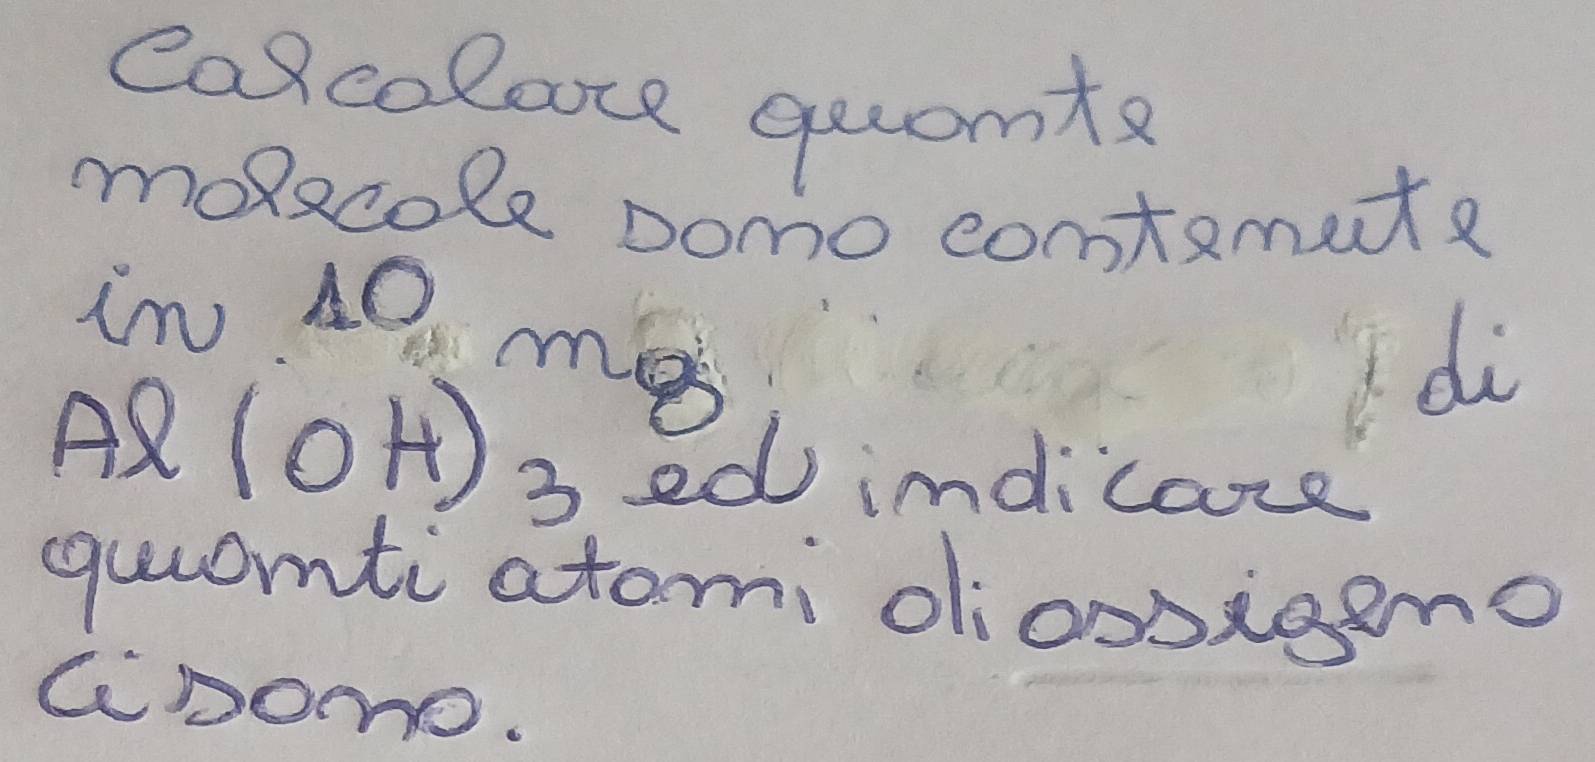 Calcolare quante
molecole sono contenute
in 10 mg di
Al(OH)3 ed indicare
quanti atomi di ossigeno
ci sono.